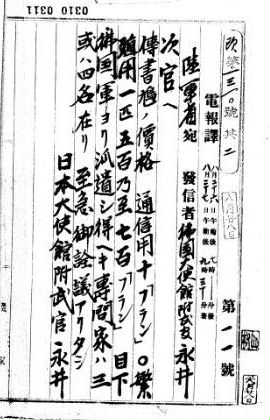 0310 0311
電報譯
第一一號
八月二十六日午後
八月二十七日午前後九時
陸軍省宛 發信者 佛國大使館附武官永井
次官ヘ
傳書鳩ノ價格 通信用十「フラン」〇繁
殖用一匹五百乃至七百「フラン」 目下
佛國軍ヨリ派遣シ得ヘキ専門家ハ三
或ハ四名在リ 至急御詮議アリタシ
日本大使館附武官 永井